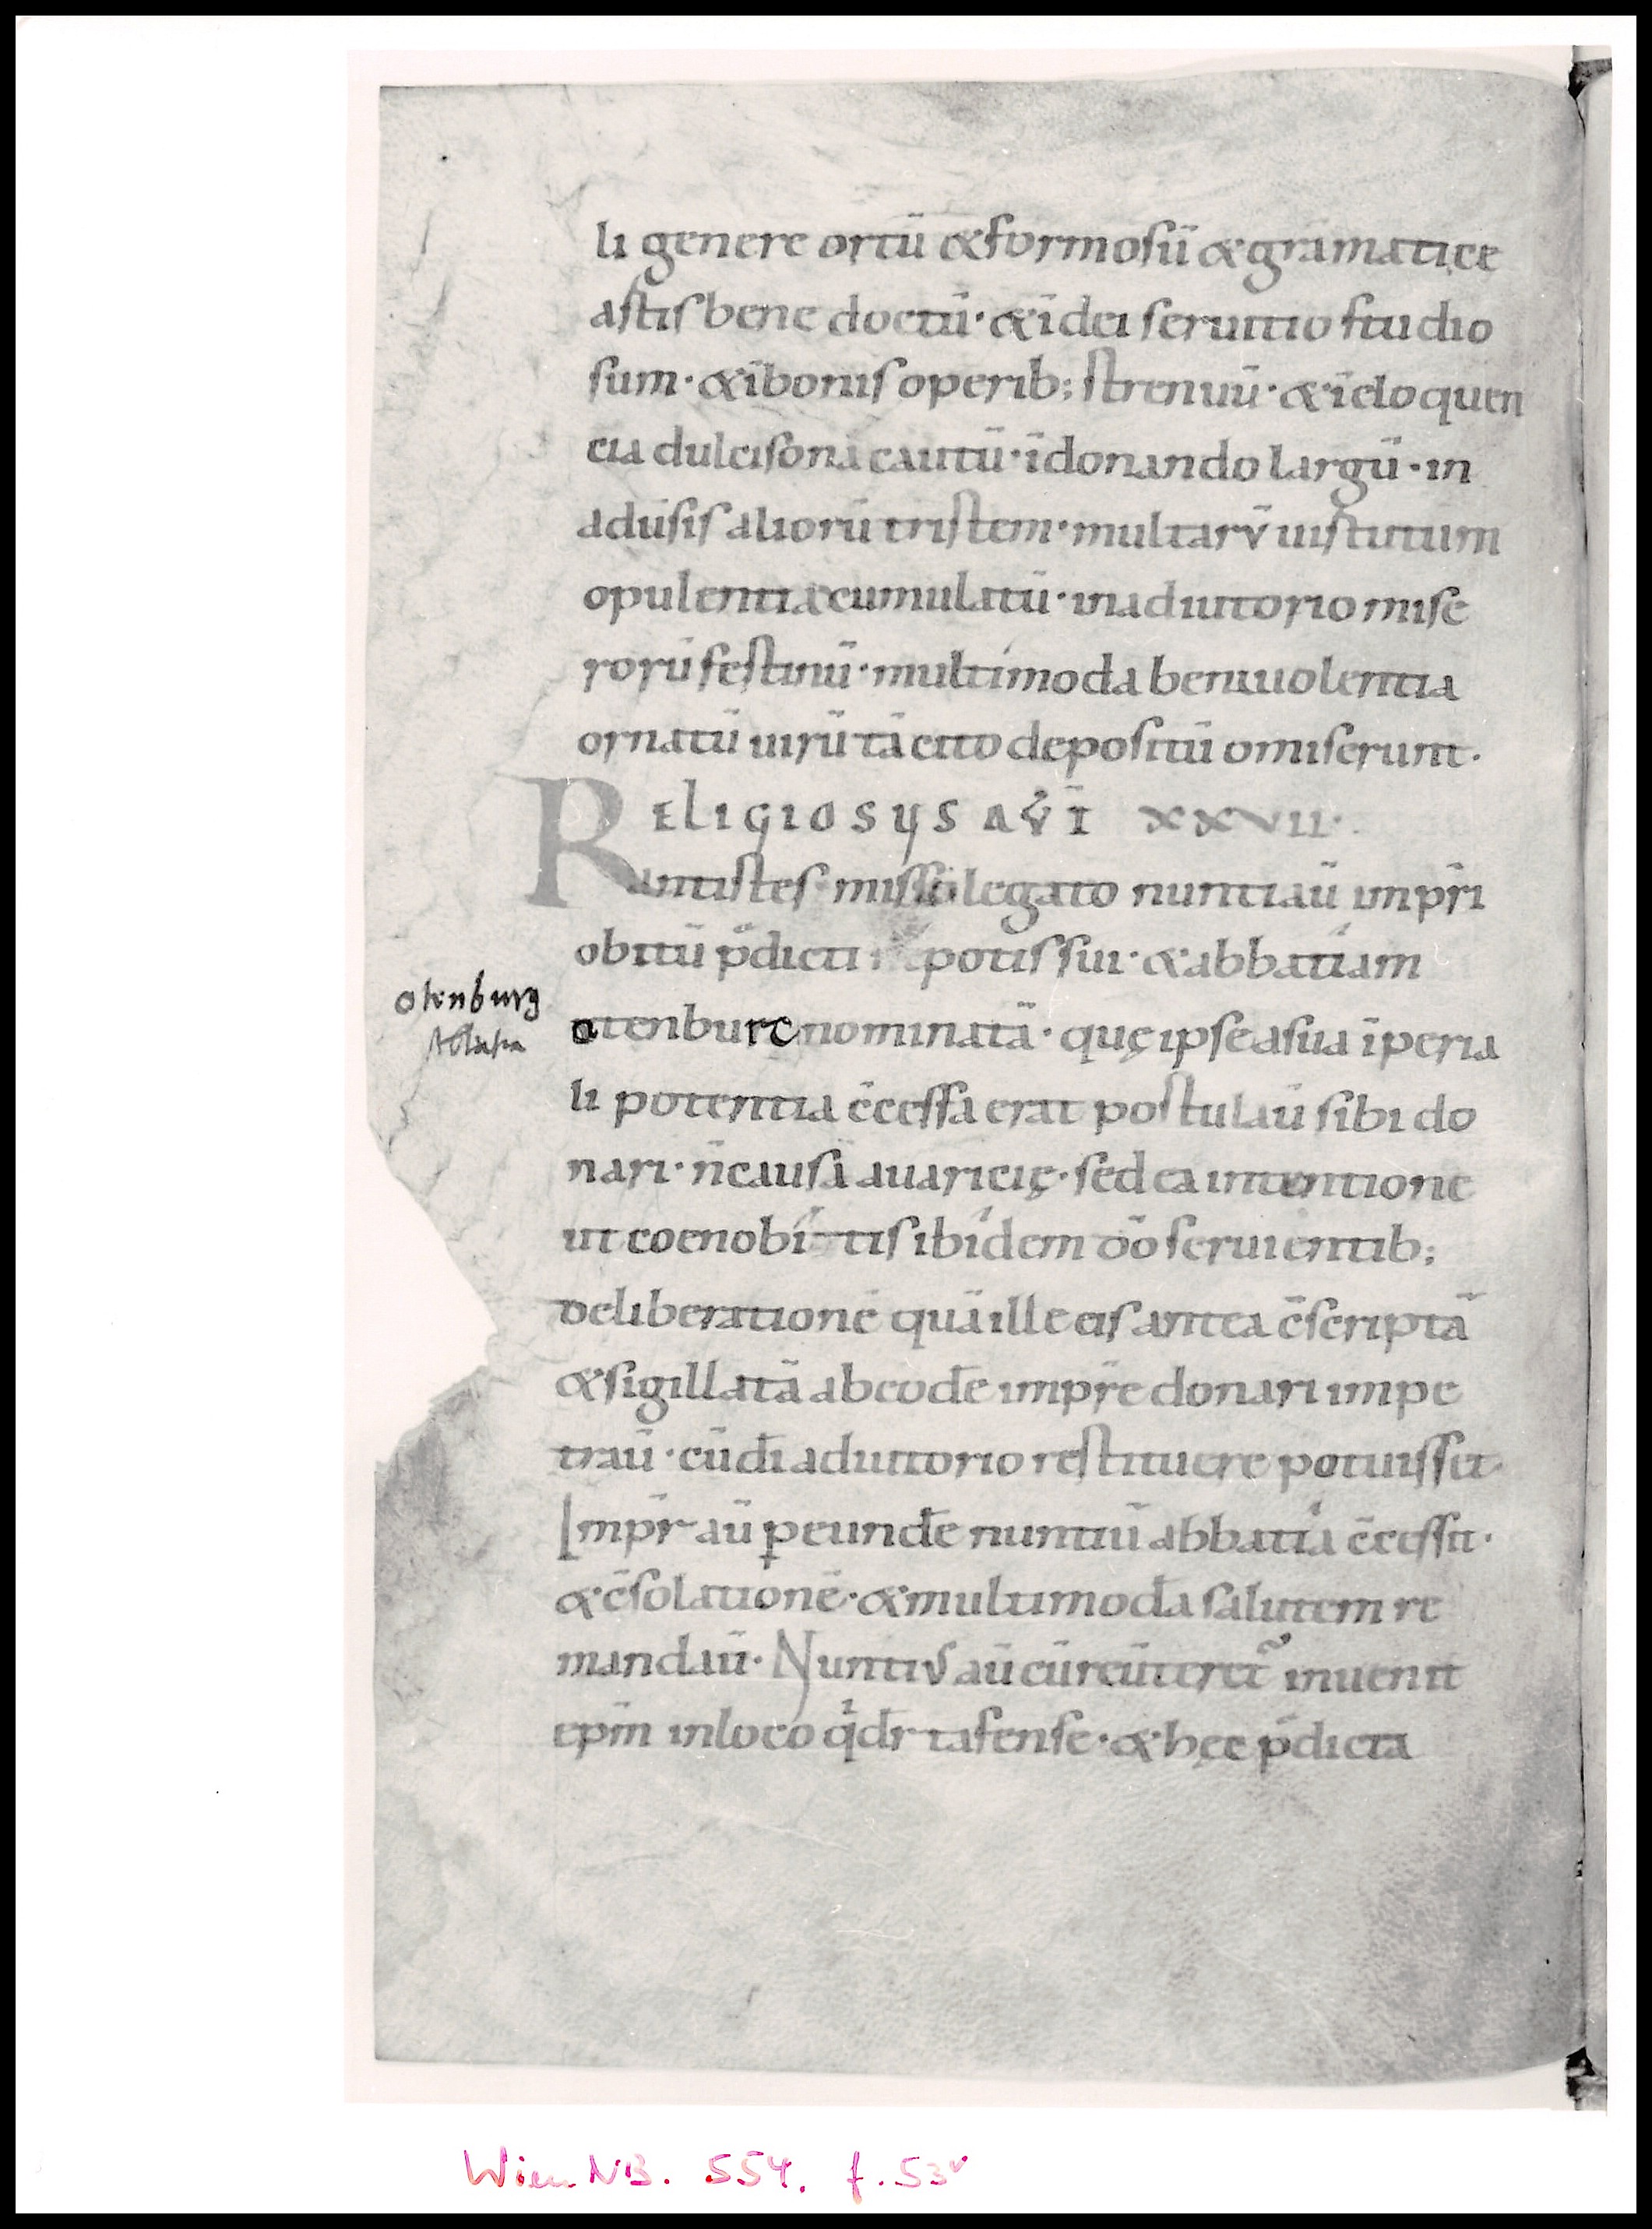 li genere ortū &formosū &gramatice
astis bene doctū· &ī dei seruitio studio
sum· &ī bonis operib; strenuū· &ī eloquen
cia dulcisona cautū· ī donando largū· in
aduīsis aliorū tristem· multarv̄ uistitutum
opulentia cumulatū· inadiutorio mise
rorū festinū· multimoda beniuolentia
ornatū uirū tā cito depositū omiserunt·
RELIGIOSUS AV̄T XXVII·
antistes misso legato nuntiaū imp̄ri
obitū p̄dicti nepotis sui· &abbatiam
otenburc nominatā· quę ipse asua īperia
li potentia c̄cessa erat postulaū sibi do
nari· n̄ causā auaricię· sed ea intentione
ut coenobitis ibidem d̄o seruientib;
deliberationē quā ille eis antea c̄scriptā
&sigillatā ab eodē imp̄re donari impe
traū· cū dī adiutorio restituere potuisset·
Imp̄r aū p̱ eundē nuntiū abbatiā c̄cessit·
&c̄solationē· &multimodā salutem re
mandaū· Nuntiꝰ aū cū reūteret᷑ inuenit
ep̄m inloco q̇ dr̄ tafense· &hęc p̄dicta
otenburg
Ablasia
Wien NB. 554. f. 53v